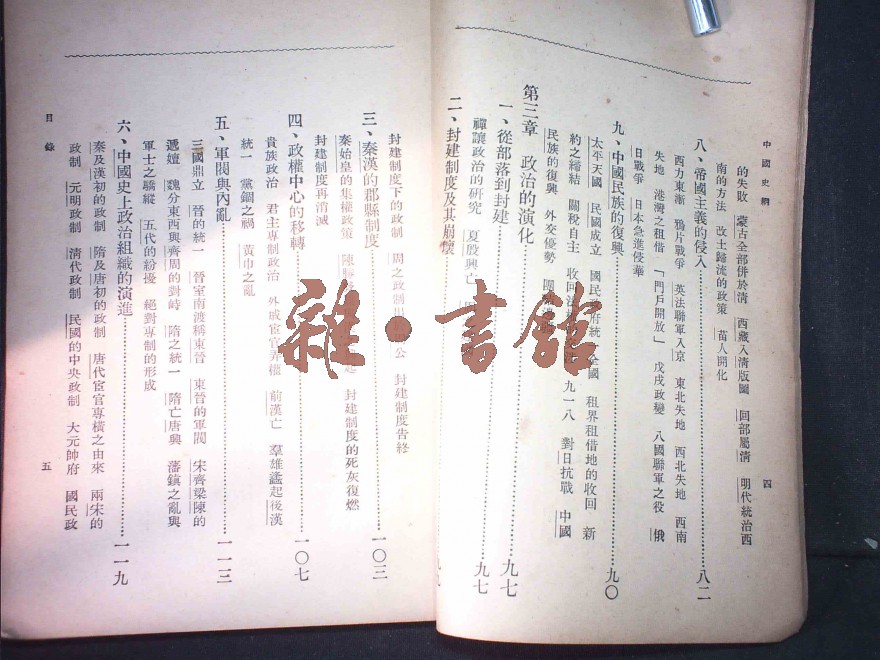 中國史綱
四
的失敗 蒙古全部併於清 西藏入清版圖 回部屬清 明代統治西
南的方法 改土歸流的政策 苗人開化
八、帝國主義的侵入……八二
西力東漸 鴉片戰爭 英法聯軍入京 東北失地 西北失地 西南
失地 港灣之租借 「門戶開放」 戊戌政變 八國聯軍之役 俄
日戰爭 日本急進侵華
九、中國民族的復興……九〇
太平天國 民國成立 國民政府統一全國 租界租借地的收回 新
約之締結 關稅自主 收回法 九一八 對日抗戰 中國
民族的復興 外交優勢
第三章 政治的演化……九七
一、從部落到封建……九七
禪讓政治的研究 夏殷興亡
二、封建制度及其崩壞
封建制度下的政制 周之政制 公 封建制度告終
三、秦漢的郡縣制度……一〇三
秦始皇的集權政策 陳 起 封建制度的死灰復燃
封建制度再消滅
四、政權中心的移轉……一〇七
貴族政治 君主專制政治 外戚宦官弄權 前漢亡 羣雄蠭起後漢
統一 黨錮之禍 黃巾之亂
五、軍閥與內亂……一一三
三國鼎立 晉的統一 晉室南渡稱東晉 東晉的軍閥 宋齊梁陳的
遞嬗 魏分東西與齊周的對峙 隋之統一 隋亡唐興 藩鎮之亂與
軍士之驕縱 五代的紛擾 絕對專制的形成
六、中國史上政治組織的演進……一一九
秦及漢初的政制 隋及唐初的政制 唐代宦官專橫之由來 兩宋的
政制 元明政制 清代政制 民國的中央政制 大元帥府 國民政
目錄
五
雜·書館